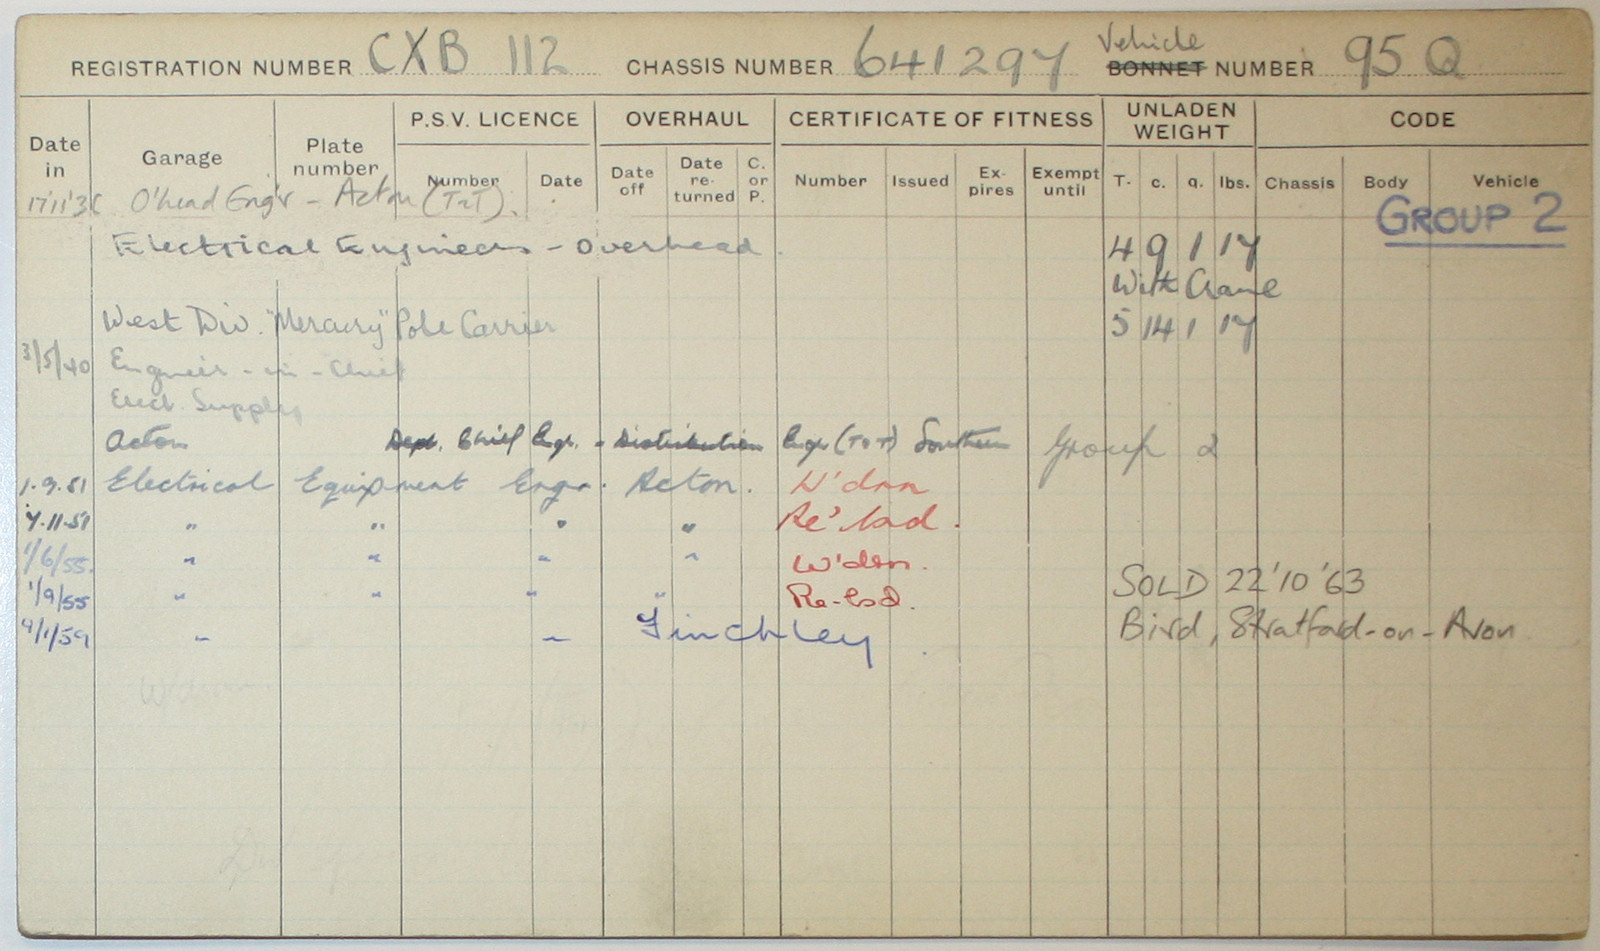 REGISTRATION NUMBER CXB 112 CHASSIS NUMBER 641297 Vehicle BONNET NUMBER 95 Q
Date in Garage Plate number P.S.V. LICENCE OVERHAUL CERTIFICATE OF FITNESS UNLADEN WEIGHT CODE
Number Date Date off Date re-turned C. or P. Number Issued Ex-pires Exempt until T. c. q. lbs. Chassis Body Vehicle
17'11'36 O'head Eng'r - Acton (T&T). GROUP 2
Electrical Engineers - Overhead. 4 9 1 17
With Crane
West Div. "Mercury" Pole Carrier 5 14 1 17
3/5/40 Engineer-in-Chief
Elect. Supply
Acton Dept. Chief Engr. - Distribution Engr (T&T) Southern Group 2
1.9.51 Electrical Equipment Engr. Acton. W'drn
7.11.51 " " " " Re'lsd.
1/6/55. " " " " W'drn.
1/9/55 " " " " Re-lsd.
SOLD 22'10'63
9/1/59 " " Finchley
Bird, Stratford-on-Avon